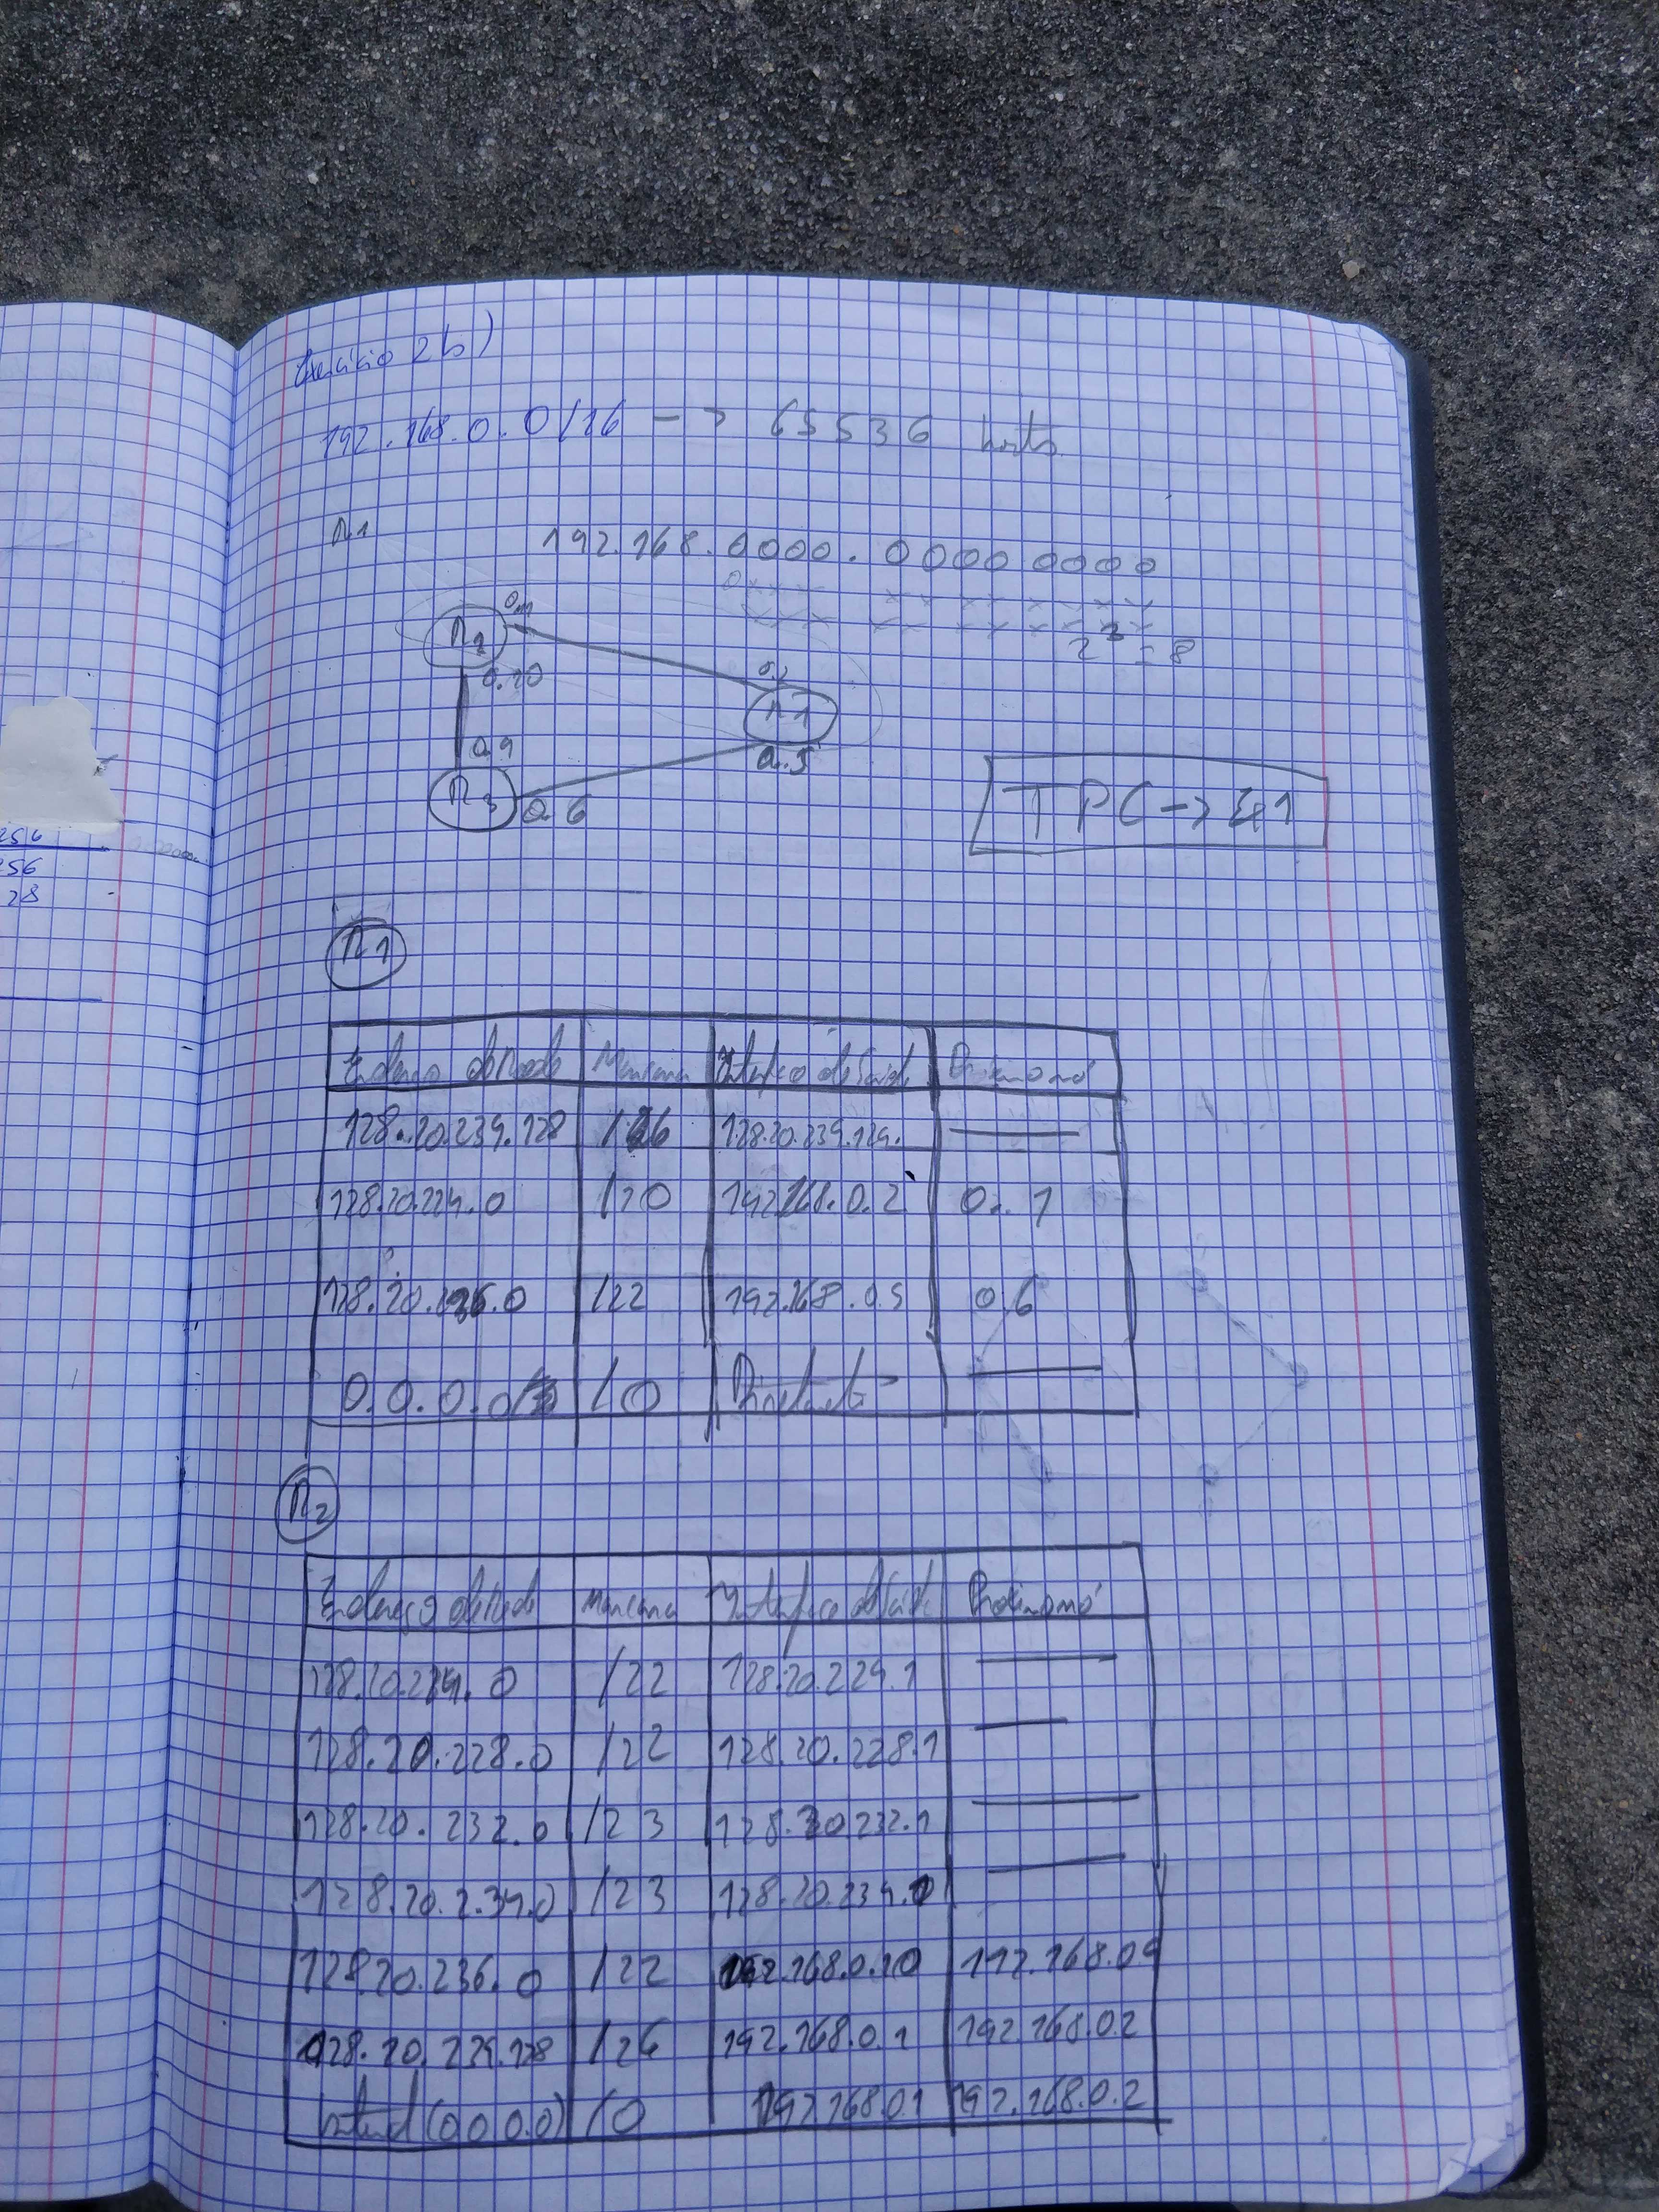 Exercício 2b)
192.168.0.0/16 -> 65536 hosts
R1 192.168.0000.0000 0000
2³ = 8
R2
0.20
0.2
R1
0.5
0.9
R3 0.6
TPC -> Ex1
256
256
28
R1
Endereço de Rede Máscara Interface de Saída Próximo nó
128.20.239.128 /26 128.20.239.129
128.20.224.0 /20 192.168.0.2 0.1
128.20.236.0 /22 192.168.0.5 0.6
0.0.0.0 /0
R2
Endereço de Rede Máscara Interface de Saída Próximo nó
128.20.224.0 /22 128.20.224.1
128.20.228.0 /22 128.20.228.1
128.20.232.0 /23 128.20.232.1
128.20.234.0 /23 128.20.234.1
128.20.236.0 /22 192.168.0.10 192.168.0.9
128.20.239.128 /26 192.168.0.1 192.168.0.2
(0.0.0.0) /0 192.168.0.1 192.168.0.2